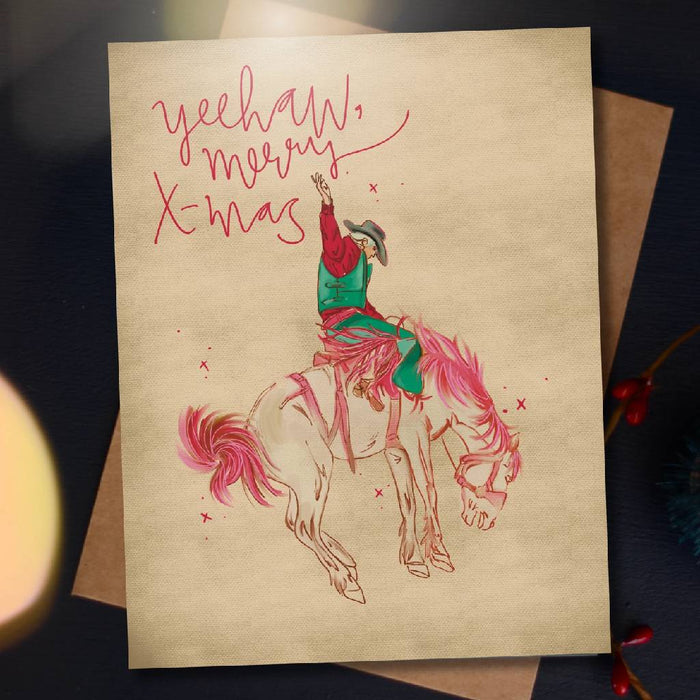 yeehaw,
merry
X-mas